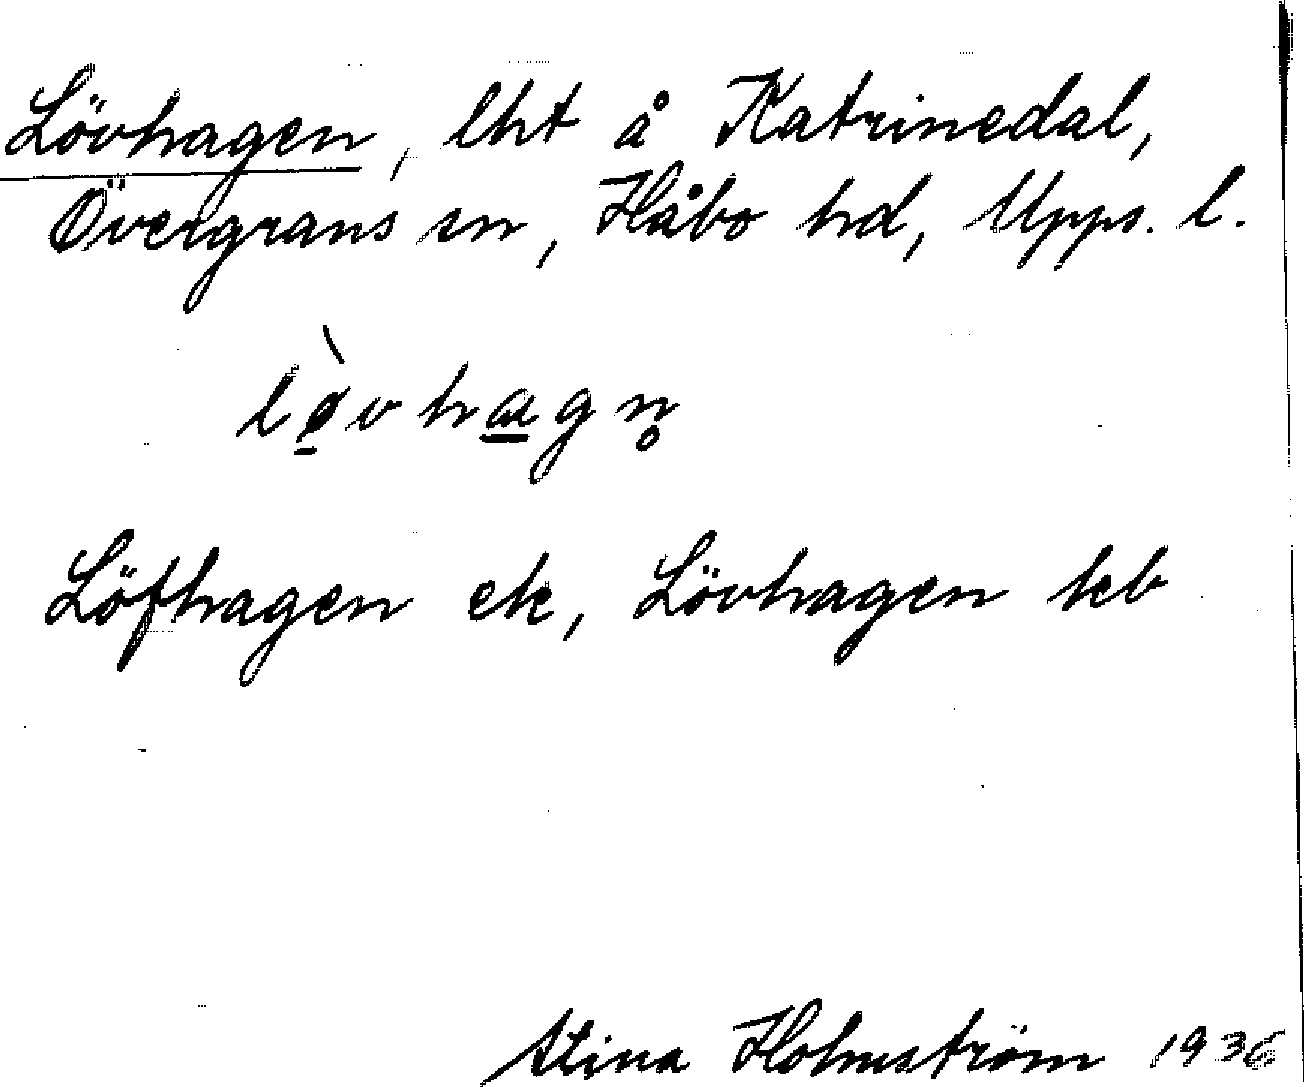 Lövhagen, lht å Katrinedal,
Övergrans sn, Håbo hd, Upps. l.
lø̀vhagn̥
Löfhagen ek, Lövhagen hcb
Stina Holmström 1936